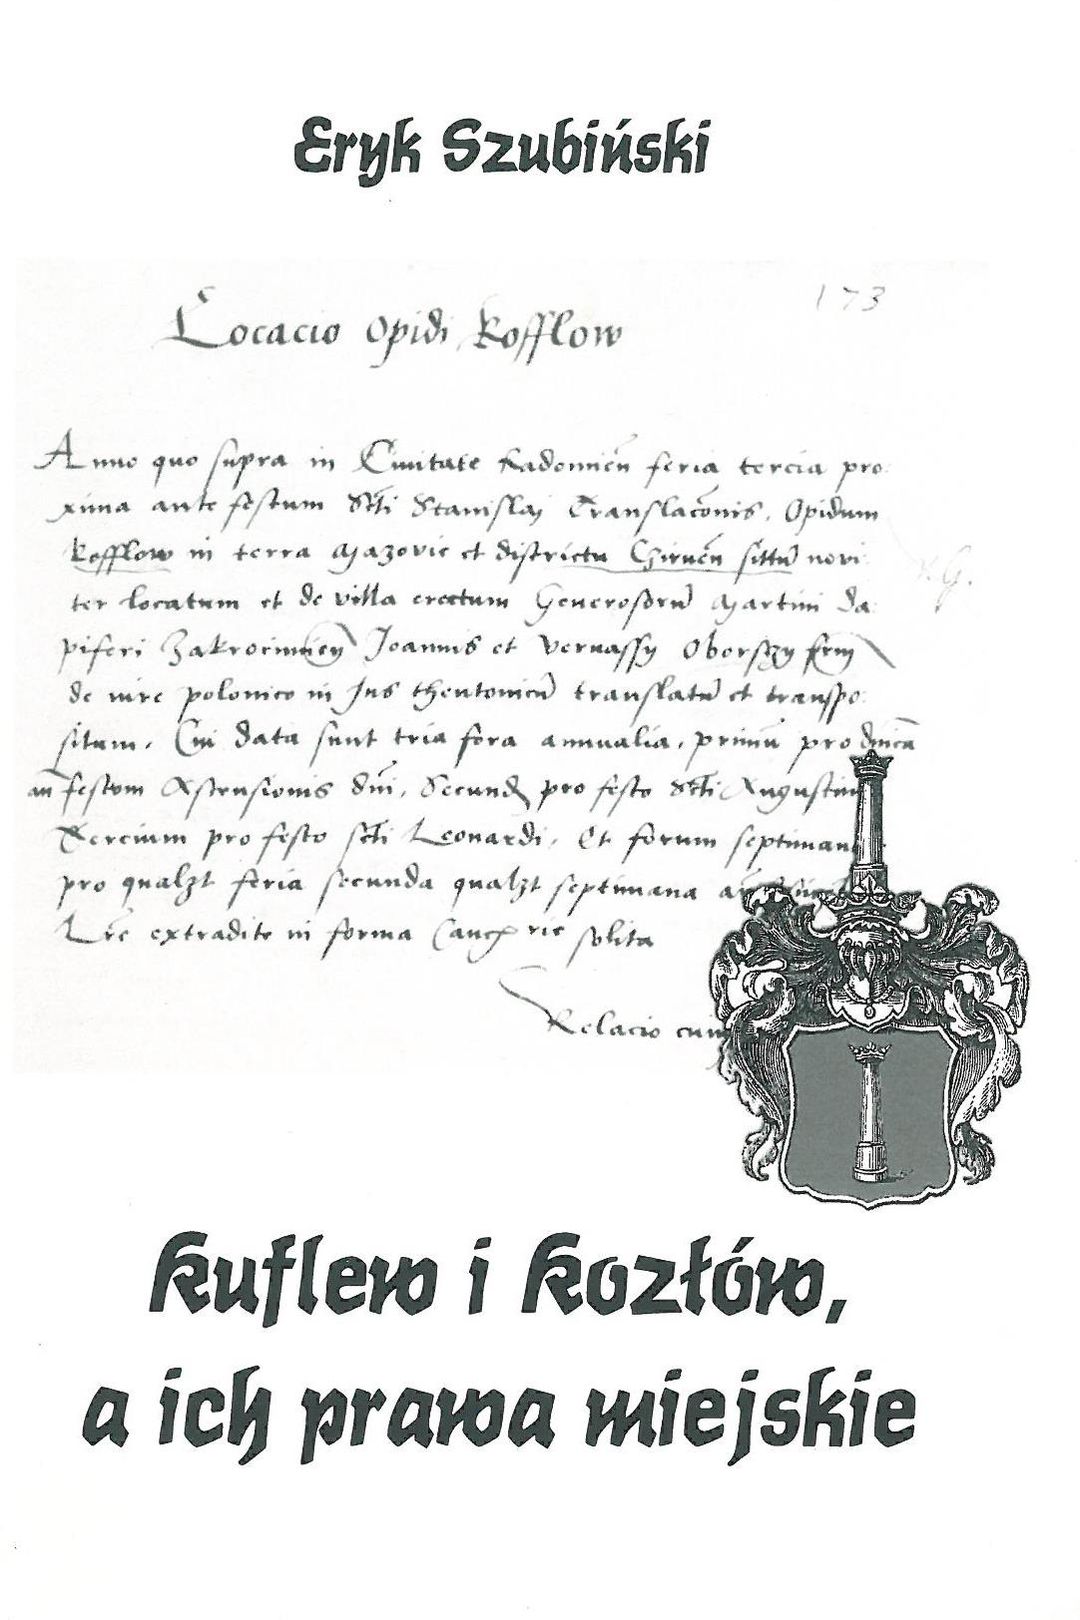 Eryk Szubiński
173
Locacio Opidi Kofflow
Anno quo supra in Civitate Radomien̄ feria tercia pro
xima ante festum Sčti Stanislaj Translacōnis, Opidum
Kofflow in terra Mazovie et districtu Czirneñ sittū novi
ter locatum et de villa erectum Generosorū Martini Da
piferi Zakrocimien̄ Joannis et Vernassy Oborszy
de iure polonico in Jus theutonicū translatū et transpo
situm. Cui data sunt tria fora annualia, primū pro dnīca
an̄ festum Ascensionis dnī, Secund pro festo Sčti Augustini
Tercium pro festo sčti Leonardi, Et forum septiman
pro qualzt feria secunda qualzt septimana
Lrē extradite in forma Canc rie solita
Relacio cum
Kuflew i Kozłów,
a ich prawa miejskie